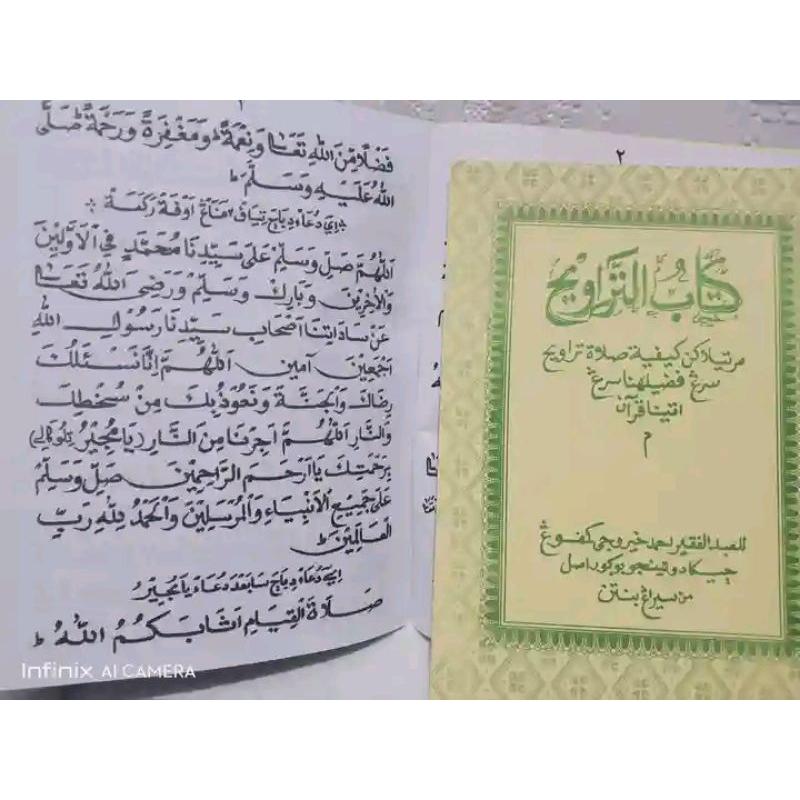 ١
فَضْلًا مِنَ اللهِ تَعَالٰى وَنِعْمَةً وَمَغْفِرَةً وَرَحْمَةً صَلَّى
اللهُ عَلَيْهِ وَسَلَّمَ
اِيڤ دعاء دباچ تياڤ٢ مناڠ اوفة ركعة
اَللّٰهُمَّ صَلِّ وَسَلِّمْ عَلٰى سَيِّدِنَا مُحَمَّدٍ فِى الْاَوَّلِيْنَ
وَالْاٰخِرِيْنَ وَبَارِكْ وَسَلِّمْ وَرَضِيَ اللهُ تَعَالٰى
عَنْ سَادَاتِنَا اَصْحَابِ سَيِّدِنَا رَسُوْلِ اللهِ
اَجْمَعِيْنَ آمين اَللّٰهُمَّ اِنَّا نَسْئَلُكَ
رِضَاكَ وَالْجَنَّةَ وَنَعُوْذُبِكَ مِنْ سُخْطِكَ
وَالنَّارِ اَللّٰهُمَّ اَجِرْنَا مِنَ النَّارِ (يَا مُجِيْرُ
بِرَحْمَتِكَ يَا اَرْحَمَ الرَّاحِمِيْنَ صَلِّ وَسَلِّمْ
عَلٰى جَمِيْعِ الْاَنْبِيَاءِ وَالْمُرْسَلِيْنَ وَالْحَمْدُ لِلّٰهِ رَبِّ
الْعَالَمِيْنَ
دعاء دباچ سابعد دعاء يا مجير
صَلَاةَ الْقِيَامِ اَثَابَكُمُ اللهُ
٢
كِتَابُ التَّرَاوِيْحِ
مرتيلاكن كيفية صلاة تراويح
سرڠ فضيلهنا سرڠ
اتينا قرآن
م
للعبد الفقير احمد خيروجى كمفوڠ
من سيراڠ بنتن
Infinix AI CAMERA